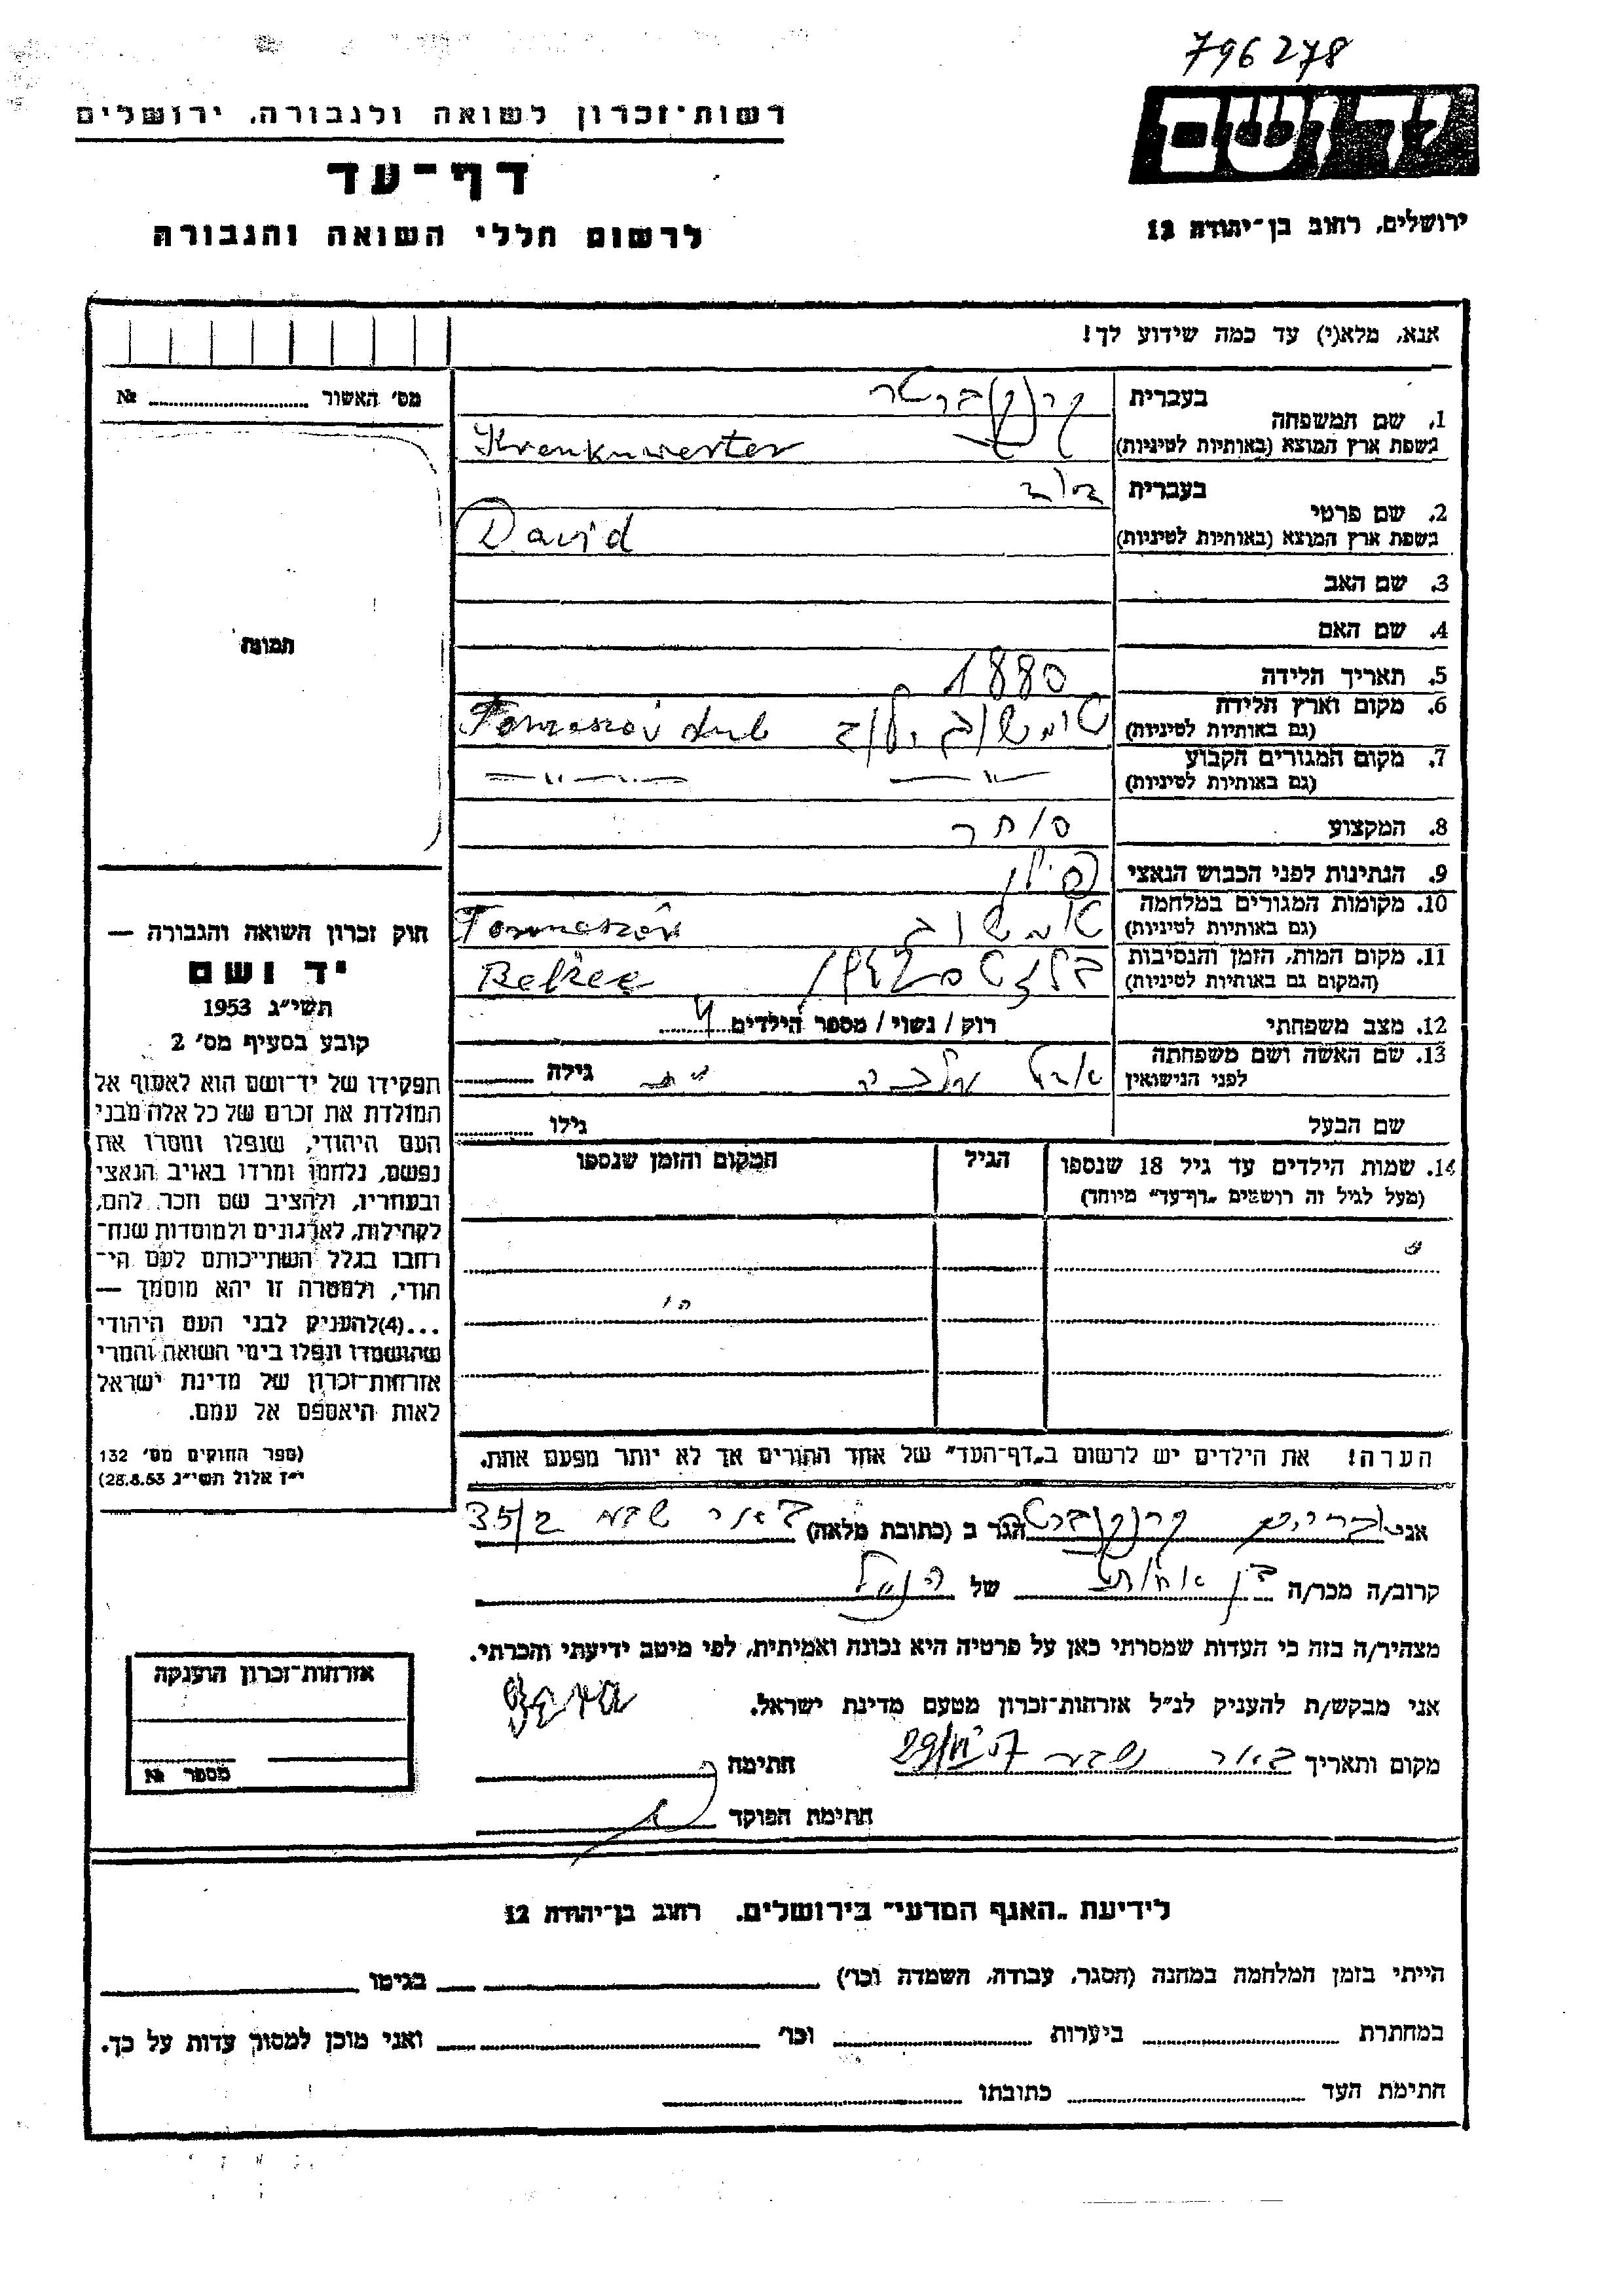 796278
רשות־זכרון לשואה ולגבורה, ירושלים
דף־עד
לרשום חללי השואה והגבורה
יד ושם
ירושלים, רחוב בן־יהודה 12
אנא, מלא(י) עד כמה שידוע לך!
מס' האשור № ........
1. שם המשפחה
בעברית קרנקברטר
בשפת ארץ המוצא (באותיות לטיניות) Krenkwerter
2. שם פרטי
בעברית דוד
בשפת ארץ המוצא (באותיות לטיניות) David
3. שם האב
4. שם האם
5. תאריך הלידה 1880
6. מקום וארץ הלידה
(גם באותיות לטיניות) טומשוב לוב Tomaszów Lub
7. מקום המגורים הקבוע
(גם באותיות לטיניות) —"— —"—
8. המקצוע סוחר
9. הנתינות לפני הכבוש הנאצי פולין
10. מקומות המגורים במלחמה
(גם באותיות לטיניות) טומשוב Tomaszów
11. מקום המות, הזמן והנסיבות
(המקום גם באותיות לטיניות) 1942 Bełżec
12. מצב משפחתי רוק / נשוי / מספר הילדים 4
13. שם האשה ושם משפחתה
לפני הנישואין גילה
שם הבעל גילו
14. שמות הילדים עד גיל 18 שנספו
(מעל לגיל זה רושמים "דף־עד" מיוחד)
הגיל
המקום והזמן שנספו
הערה! את הילדים יש לרשום ב"דף־העד" של אחד ההורים אך לא יותר מפעם אחת.
תמונה
חוק זכרון השואה והגבורה —
יד ושם
תשי"ג 1953
קובע בסעיף מס' 2
תפקידו של יד־ושם הוא לאסוף אל
המולדת את זכרם של כל אלה מבני
העם היהודי, שנפלו ומסרו את
נפשם, נלחמו ומרדו באויב הנאצי
ובעוזריו, ולהציב שם וזכר להם,
לקהילות, לארגונים ולמוסדות שנח־
רבו בגלל השתייכותם לעם הי־
הודי, ולמטרה זו יהא מוסמך —
...(4) להעניק לבני העם היהודי
שהושמדו ונפלו בימי השואה והמרי
אזרחות־זכרון של מדינת ישראל
לאות היאספם אל עמם.
(ספר החוקים מס' 132
י"ז אלול תשי"ג 28.8.53)
אני קרנקברטר הגר ב (כתובת מלאה) באר שבע ב/35
קרוב/ה מכר/ה בן אחותו של הנ"ל
מצהיר/ה בזה כי העדות שמסרתי כאן על פרטיה היא נכונה ואמיתית, לפי מיטב ידיעתי והכרתי.
אני מבקש/ת להעניק לנ"ל אזרחות־זכרון מטעם מדינת ישראל.
מקום ותאריך באר שבע חתימה
חתימת הפוקד
אזרחות־זכרון הוענקה
מספר №
לידיעת "האגף המדעי" בירושלים, רחוב בן־יהודה 12
הייתי בזמן המלחמה במחנה (הסגר, עבודה, השמדה וכו') בגיטו
במחתרת ביערות וכו' ואני מוכן למסור עדות על כך.
חתימת העד כתובתו